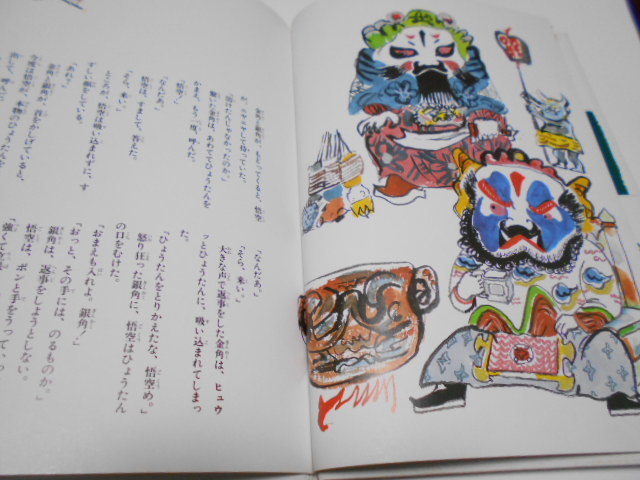 金角と銀角が、もどってくると、悟空
が、ニヤニヤして待っていた。
「溶けたんじゃなかったのか。」
驚いた金角は、あわててひょうたんを
かまえ、もう一度、呼んだ。
「悟空。」
「なんだあ。」
悟空は、すまして、答えた。
「そら、来い。」
ところが、悟空は吸い込まれずに、す
ずしい顔をしている。
「あれ？」
金角と銀角が、首をかしげていると、
今度は悟空が、本物のひょうたんを
「なんだあ。」
「そら、来い。」
大きな声で返事をした金角は、ヒュウ
っとひょうたんに、吸い込まれてしまっ
た。
「ひょうたんをとりかえたな、悟空め。」
怒り狂った銀角に、悟空はひょうたん
の口をむけた。
「おまえも入れよ、銀角。」
「おっと、その手には、のるものか。」
銀角は、返事をしようとしない。
悟空は、ポンと手をうって、